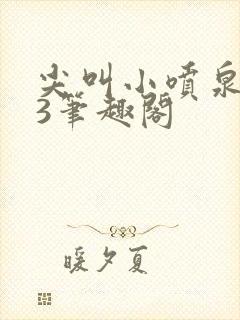 尖叫小喷泉
3笔趣阁
暖夕夏